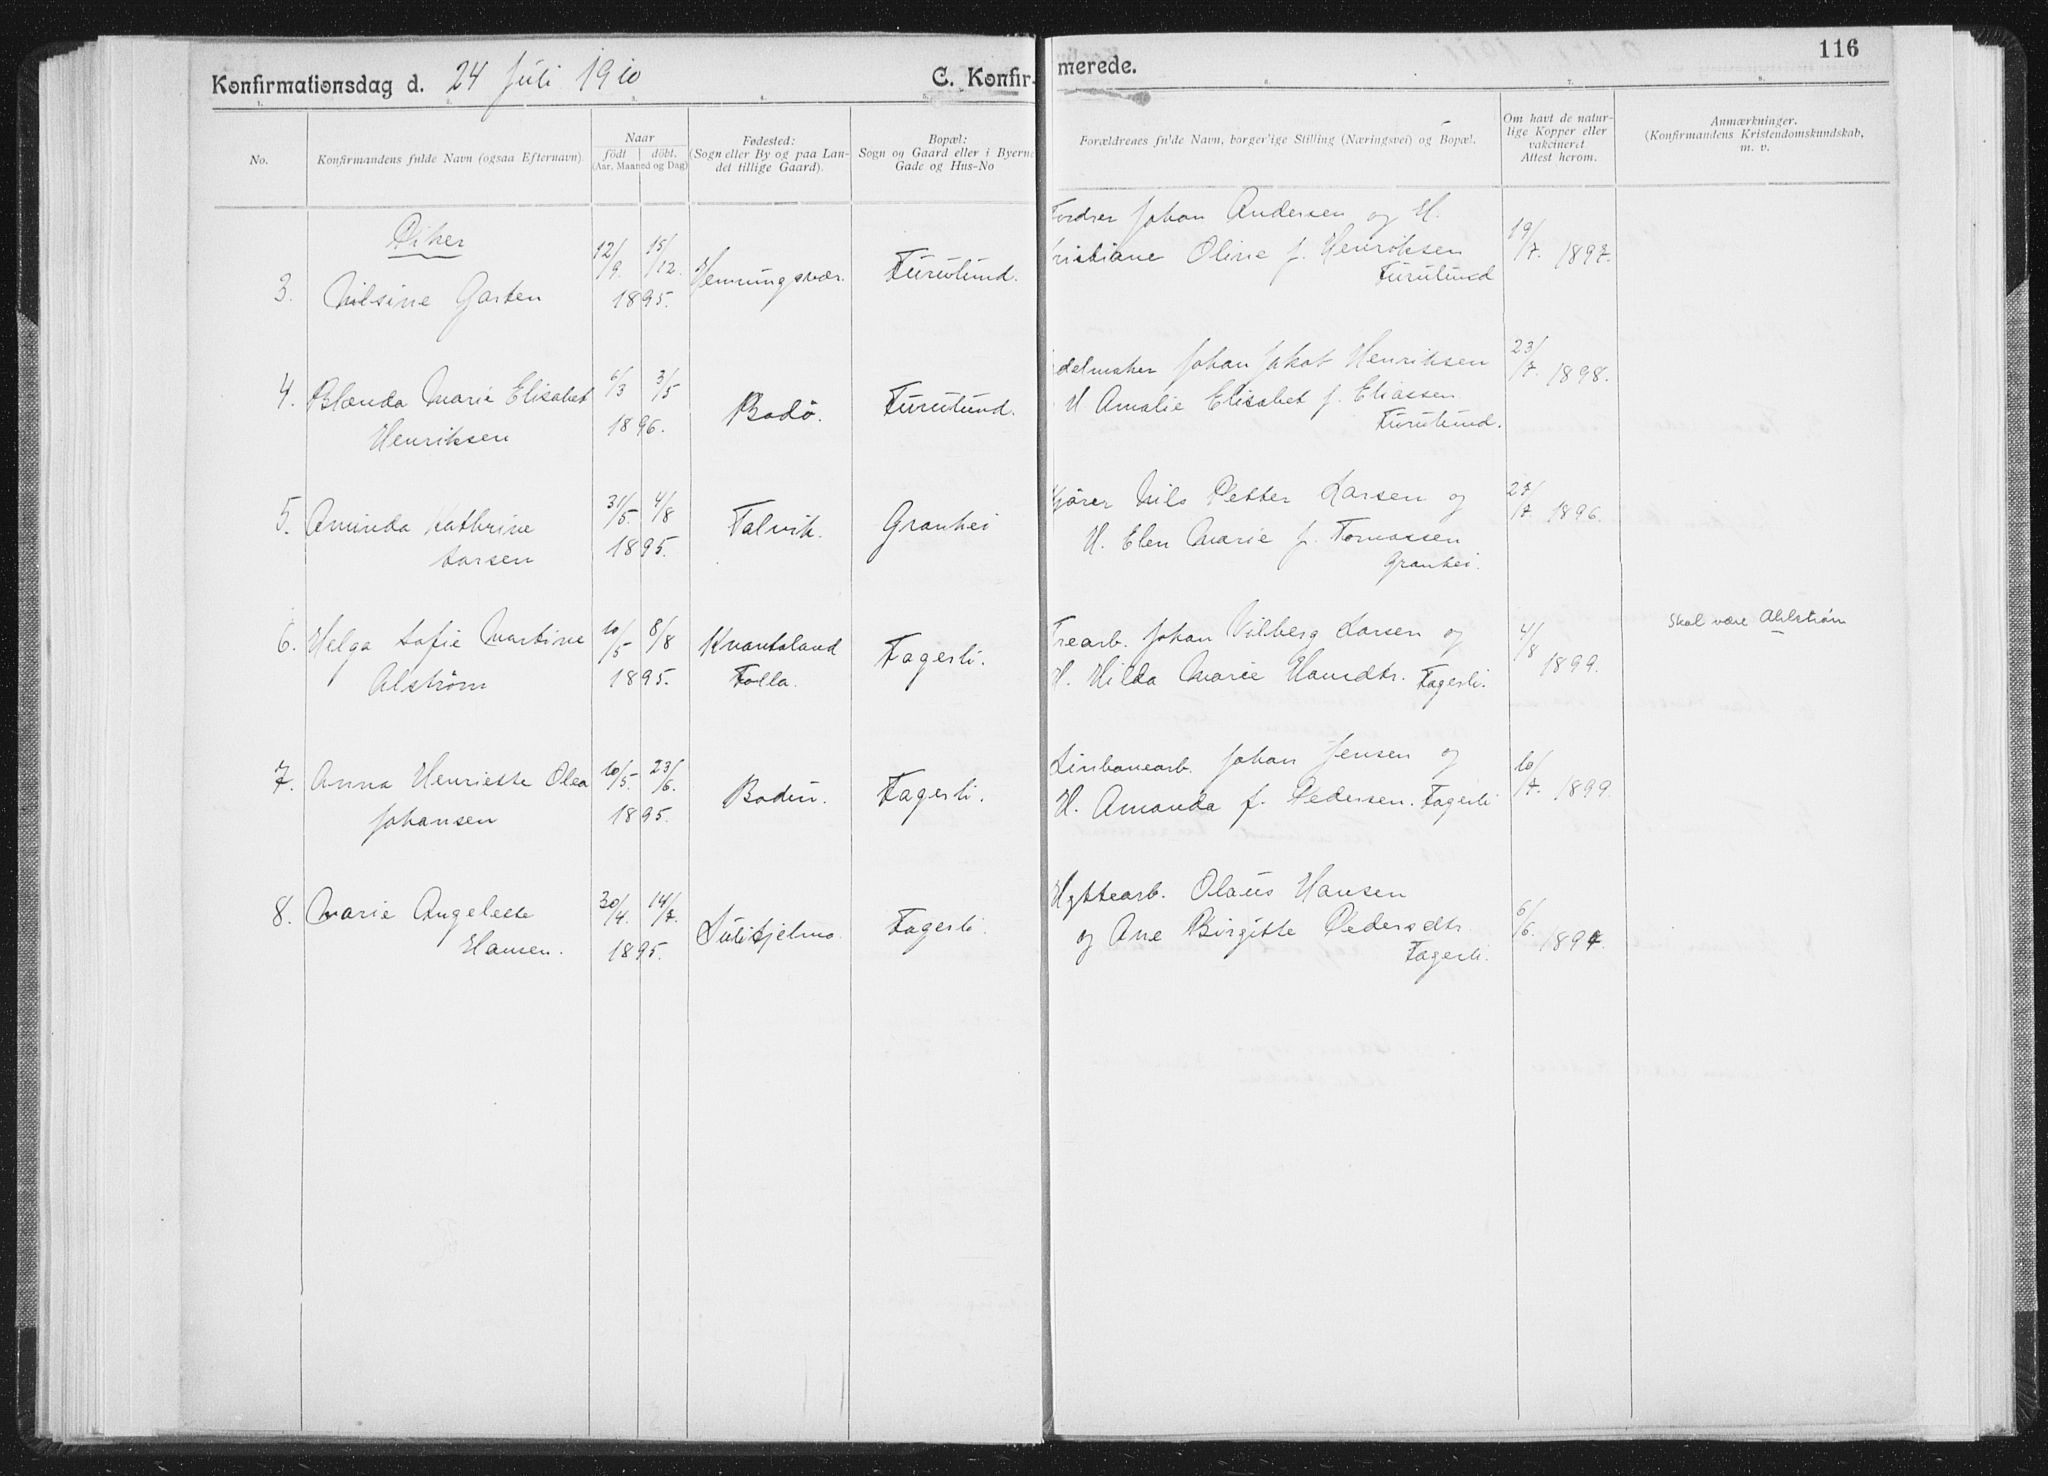 116
Konfirmationsdag d. 24 Juli 1910
C. Konfirmerede.
1. 2. 3. 4. 5. 6. 7. 8.
No.
Konfirmandens fulde Navn (ogsaa Efternavn)
Naar
födt döbt.
(Aar, Maaned og Dag)
Fødested:
(Sogn eller By og paa Lan-
det tillige Gaard).
Bopæl:
Sogn og Gaard eller i Byerne
Gade og Hus-No
Forældrenes fulde Navn, borgerlige Stilling (Næringsvei) og Bopæl.
Om havt de natur-
lige Kopper eller
vakcineret
Attest herom.
Anmærkninger.
(Konfirmandens Kristendomskundskab,
m. v.
Piker
3. Nilsine Garten
12/9. 15/12.
1895.
Henningsvær.
Furulund.
Fordrer Johan Andersen og H.
Kristiane Oline f. Henriksen
Furulund
19/7. 1897.
4. Blænda Marie Elisabet
Henriksen
6/3 3/5
1896.
Bodø.
Furulund.
delmaker Johan Jakob Henriksen
H Amalie Elisabet f. Eliassen
Furulund.
23/7. 1898.
5. Aminda Kathrine
Larsen
31/5. 4/8
1895.
Talvik.
Granhei
Kjører Nils Petter Larsen og
H. Elen Marie f. Tomassen
Granhei.
27/7. 1896.
6. Helga Sofie Martine
Alstrøm
10/5 8/8
1895.
Kvantoland
Folla.
Fagerli.
Trearb. Johan Vilberg Larsen og
H. Hilda Marie Hansdtr. Fagerli.
4/8 1899.
Skal være Ahlstrøm
7. Anna Henriette Olea
Johansen
10/5. 23/6.
1895.
Bodin.
Fagerli.
Linbanearb. Johan Jensen og
H. Amanda f. Pedersen. Fagerli
10/7. 1899.
8. Marie Angelette
Hansen.
30/4. 14/7.
1895.
Sulitjelma.
Fagerli.
Hyttearb. Olaus Hansen
og Ane Birgitte Pedersdtr.
Fagerli.
6/6. 1897.